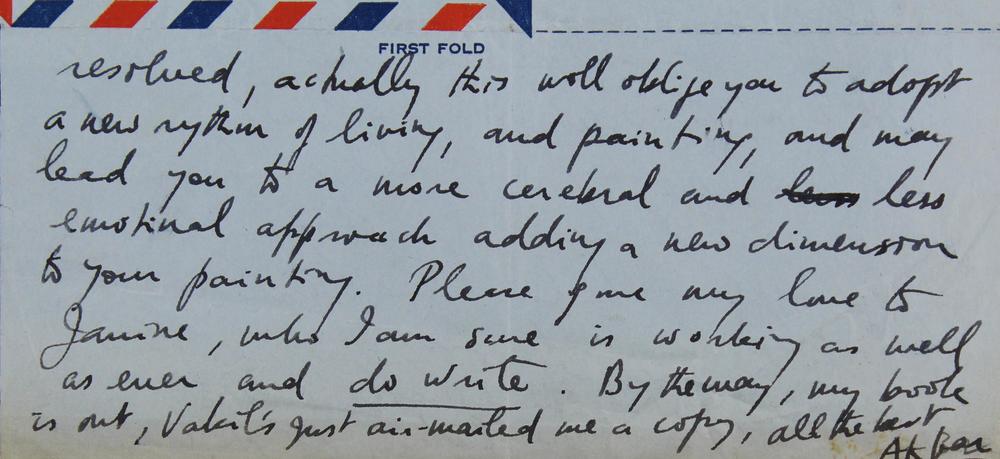 FIRST FOLD
resolved, actually this will oblige you to adopt
a new rythm of living, and painting, and may
lead you to a more cerebral and less less
emotional approach adding a new dimension
to your painting. Please give my love to
Janine, who I am sure is working as well
as ever and do write. By the way, my book
is out, Vakil's just air-mailed me a copy, all the best
Akbar